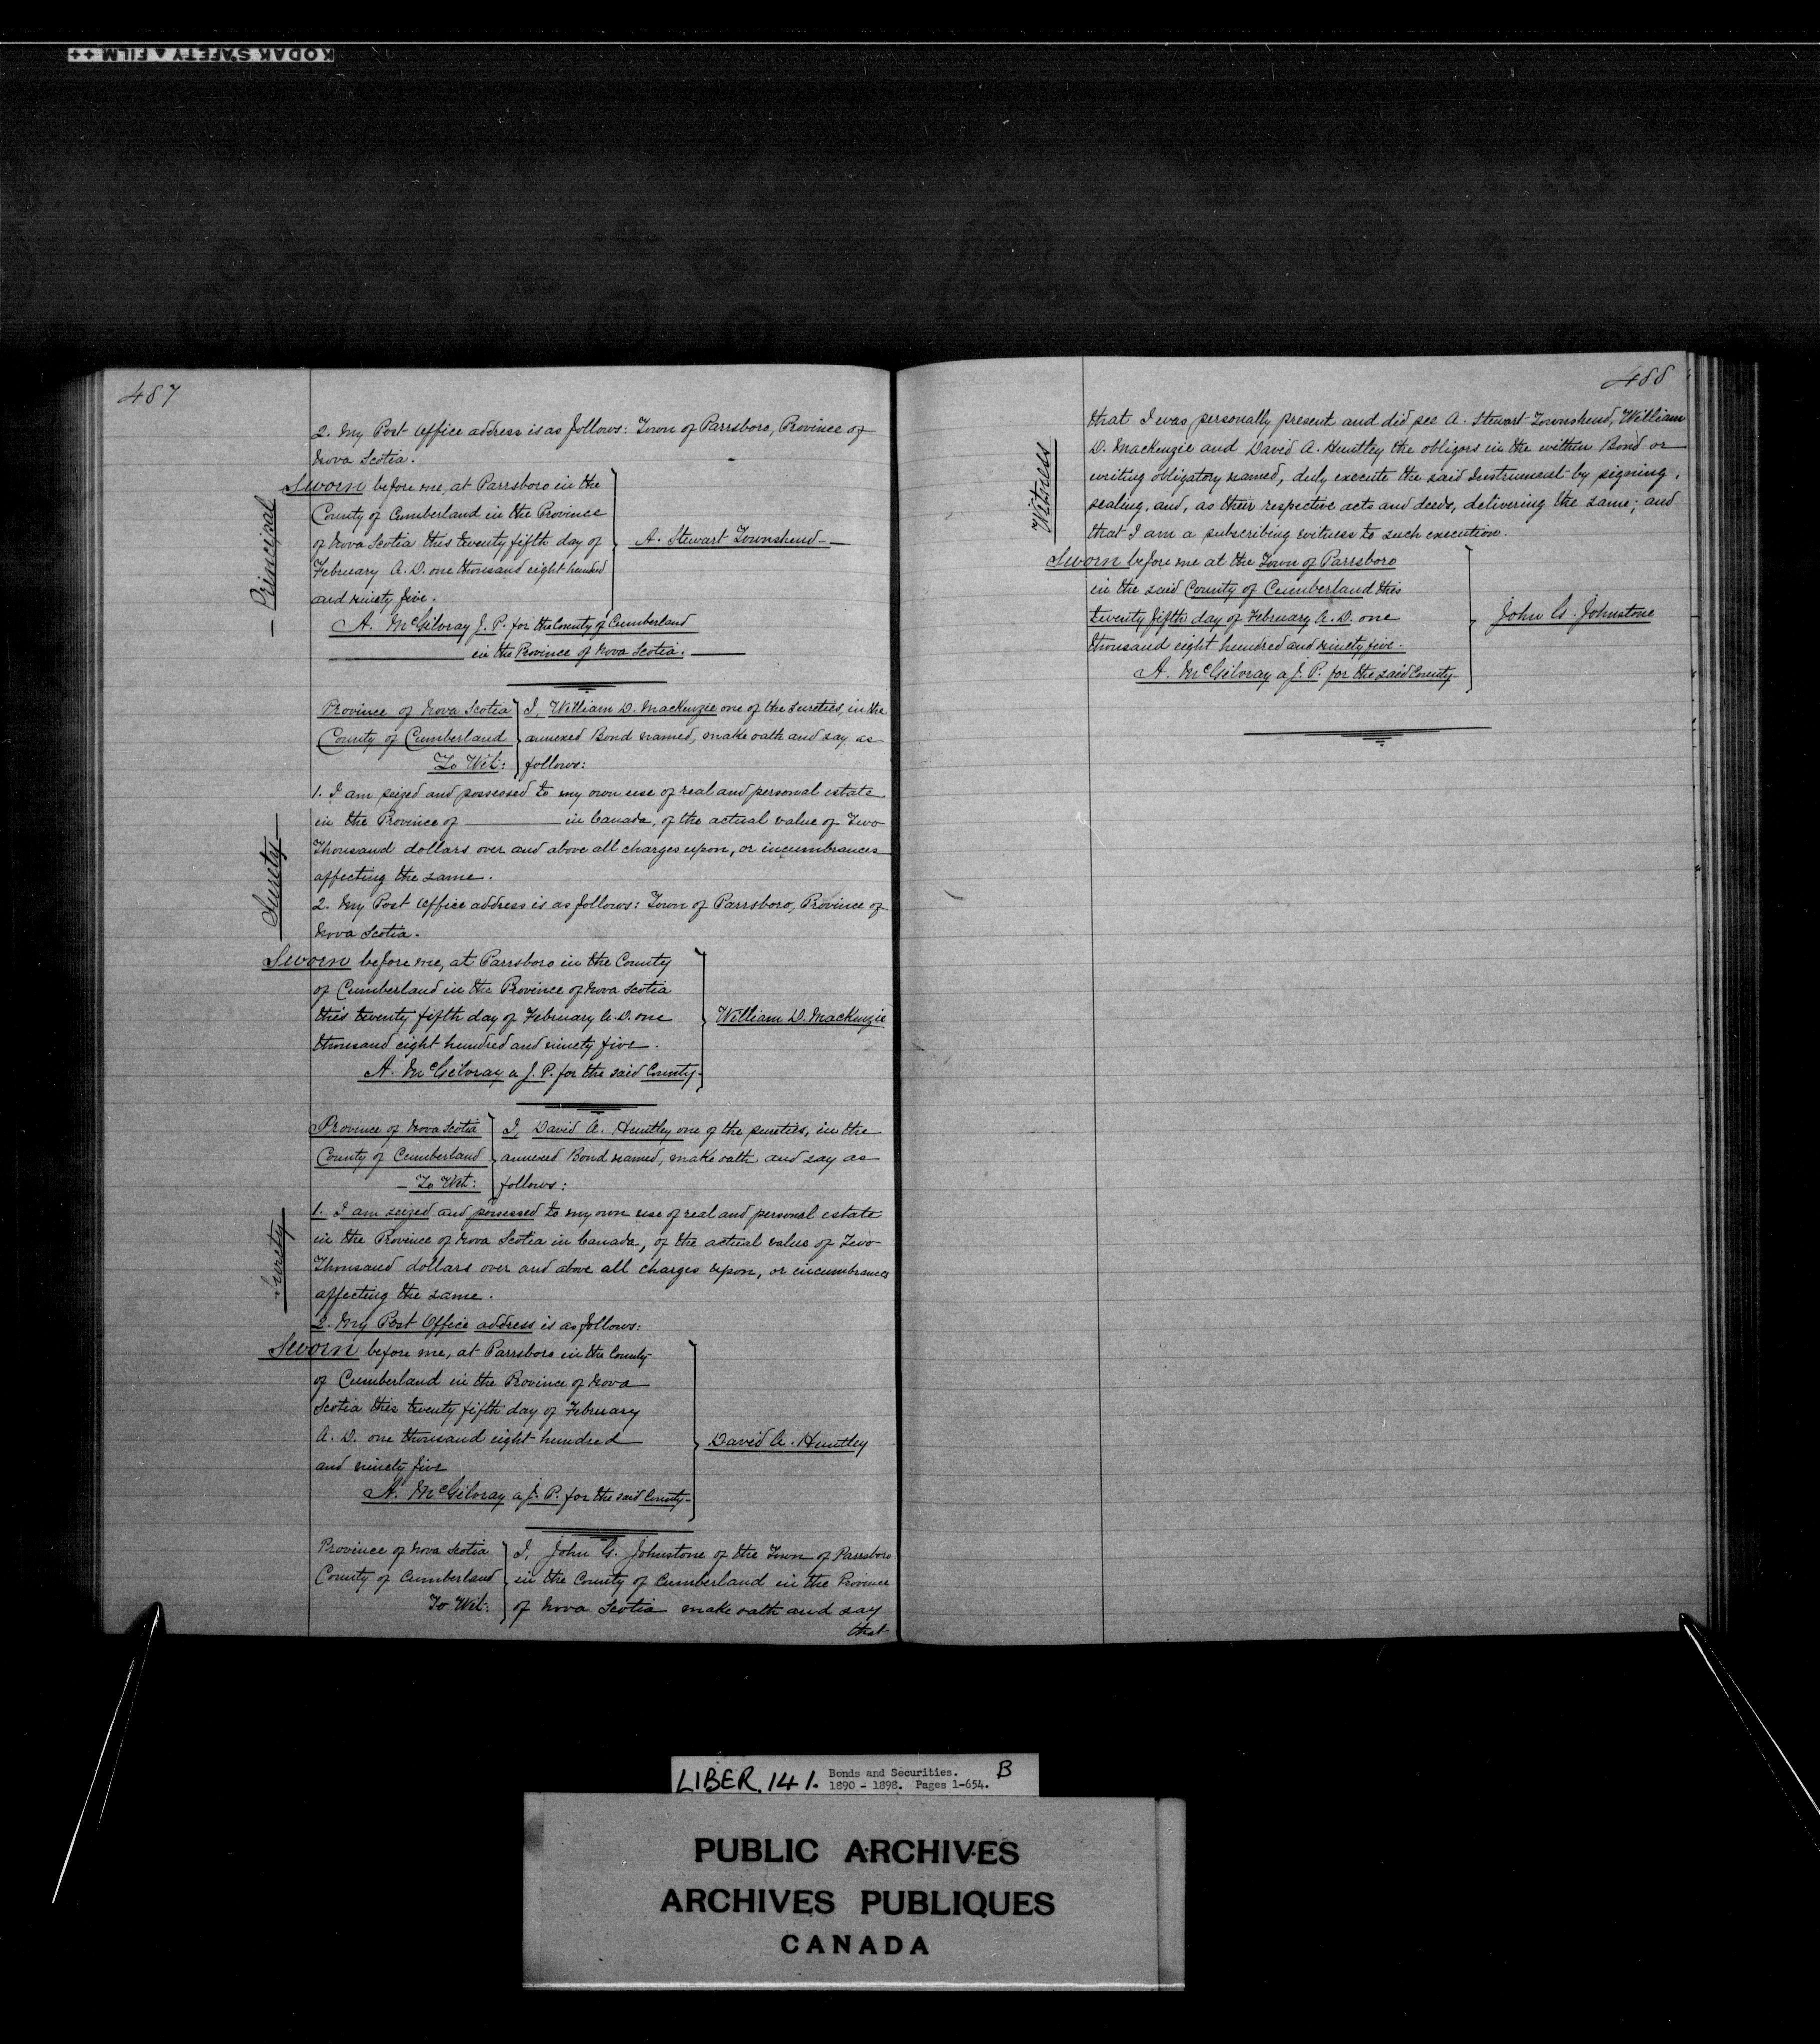 KODAK SAFETY ▲ FILM ++
487
2. My Post Office address is as follows: Town of Parrsboro, Province of
Nova Scotia.
Principal
Sworn before me, at Parrsboro in the
County of Cumberland in the Province
of Nova Scotia this twenty fifth day of
February A.D. one thousand eight hundred
and ninety five.
A. Stewart Townshend
A. McGilvray J. P. for the County of Cumberland
in the Province of Nova Scotia.
Province of Nova Scotia I, William D. MacKenzie one of the sureties, in the
County of Cumberland annexed Bond named, make oath and say as
To Wit: follows:
Surety
1. I am seized and possessed to my own use of real and personal estate
in the Province of ——— in Canada, of the actual value of Two
Thousand dollars over and above all charges upon, or incumbrances
affecting the same.
2. My Post Office address is as follows: Town of Parrsboro, Province of
Nova Scotia.
Sworn before me, at Parrsboro in the County
of Cumberland in the Province of Nova Scotia
this twenty fifth day of February A.D. one
thousand eight hundred and ninety five.
William D. MacKenzie
A. McGilvray a J. P. for the said County
Province of Nova Scotia I, David A. Huntley one of the sureties, in the
County of Cumberland annexed Bond named, make oath and say as
To Wit: follows:
Surety
1. I am seized and possessed to my own use of real and personal estate
in the Province of Nova Scotia in Canada, of the actual value of Two
Thousand dollars over and above all charges upon, or incumbrances
affecting the same.
2. My Post Office address is as follows:
Sworn before me, at Parrsboro in the County
of Cumberland in the Province of Nova
Scotia this twenty fifth day of February
A. D. one thousand eight hundred
and ninety five
David A. Huntley
A. McGilvray a J. P. for the said County
Province of Nova Scotia I, John G. Johnstone of the Town of Parrsboro
County of Cumberland in the County of Cumberland in the Province
To Wit: of Nova Scotia make oath and say
that
488
Witness
that I was personally present and did see A. Stewart Townshend, William
D. MacKenzie and David A. Huntley the obligors in the within Bond or
writing obligatory named, duly execute the said Instrument by signing,
sealing, and, as their respective acts and deeds, delivering the same; and
that I am a subscribing witness to such execution.
Sworn before me at the Town of Parrsboro
in the said County of Cumberland this
twenty fifth day of February A. D. one
thousand eight hundred and ninety five.
John G. Johnstone
A. McGilvray a J. P. for the said County
LIBER. 141. Bonds and Securities. B
1890 - 1898. Pages 1-654.
PUBLIC ARCHIVES
ARCHIVES PUBLIQUES
CANADA